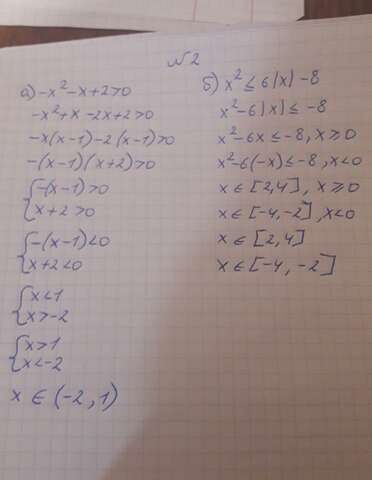 N2
а) -x² - x + 2 > 0
-x² + x - 2x + 2 > 0
-x(x-1) - 2(x-1) > 0
-(x-1)(x+2) > 0
{ -(x-1) > 0
x + 2 > 0
{ -(x-1) < 0
x + 2 < 0
{ x < 1
x > -2
{ x > 1
x < -2
x ∈ (-2, 1)
б) x² ≤ 6|x| - 8
x² - 6|x| ≤ -8
x² - 6x ≤ -8, x ≥ 0
x² - 6(-x) ≤ -8, x < 0
x ∈ [2,4], x ≥ 0
x ∈ [-4,-2], x < 0
x ∈ [2,4]
x ∈ [-4,-2]